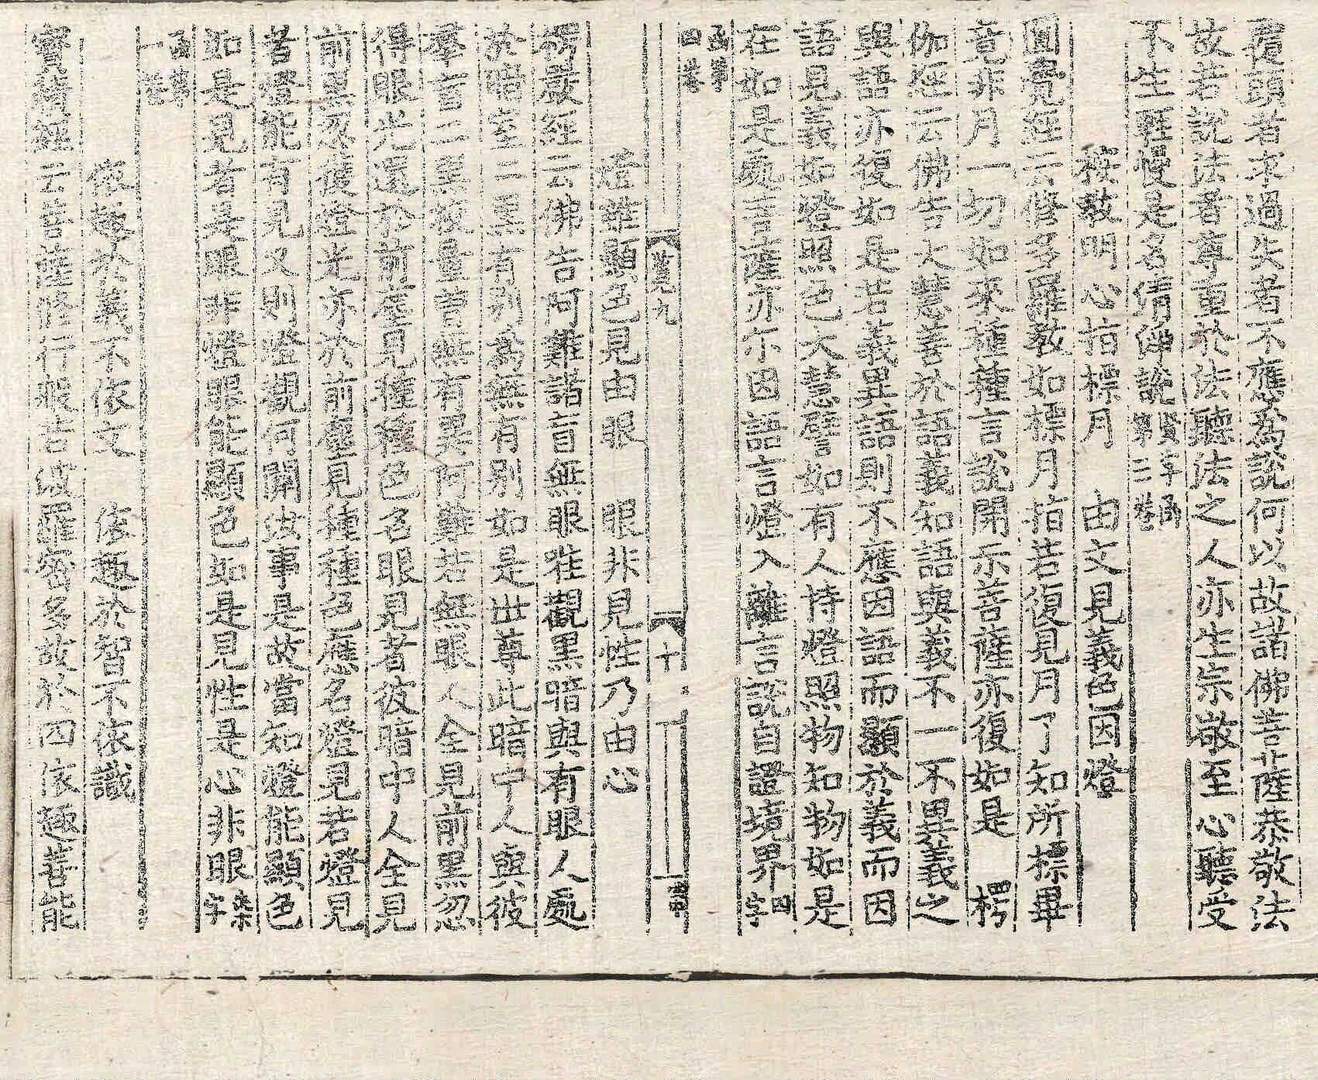 覆頭者求過失者不應為說何以故諸佛菩薩恭敬法
故若說法者尊重於法聽法之人亦生宗敬至心聽受
不生輕慢是名清淨說 賢字函第三卷
按教明心指標月　由文見義色因燈
圓覺經云脩多羅教如標月指若復見月了知所標畢
竟非月一切如來種種言說開示菩薩亦復如是　楞
伽經云佛告大慧善於語義知語與義不一不異義之
與語亦復如是若義異語則不應因語而顯於義而因
語見義如燈照色大慧譬如有人持燈照物知物如是
在如是處菩薩亦尒因語言燈入離言說自證境界 四字
函第四卷
十
燈雖顯色見由眼　眼非見性乃由心
楞嚴經云佛告阿難諸盲無眼唯觀黑暗與有眼人處
於暗室二黑有別為無有別如是世尊此暗中人與彼
羣盲二黑校量曾無有異阿難若無眼人全見前黑忽
得眼光還於前塵見種種色名眼見者彼暗中人全見
前黑忽獲燈光亦於前塵見種種色應名燈見若燈見
者燈能有見又則燈觀何關汝事是故當知燈能顯色
如是見者是眼非燈眼能顯色如是見性是心非眼
函第一卷
依趣於義不依文　依趣於智不依識
寶積經云菩薩修行般若波羅密多故於四依趣善能